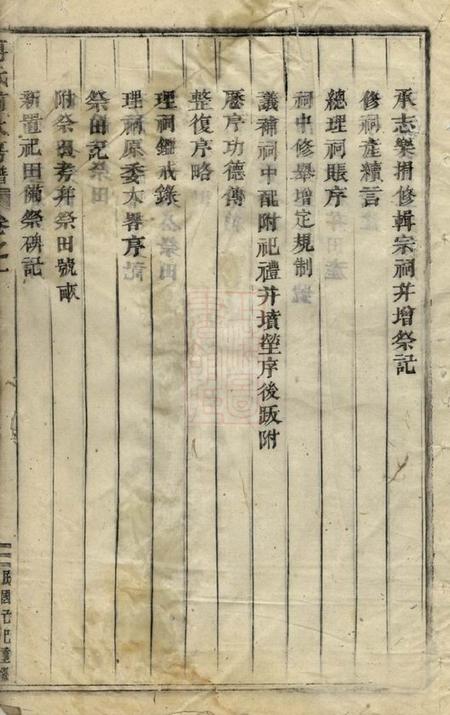 承志樂捐修輯宗祠并增祭記
修祠產續言
總理祠賬序
祠中修舉增定規制
議補祠中配附祀禮并墳塋序後跋附
歷序功德傳
整復序略
理祠鑑戒錄
理祠原委木器序
祭田記
附祭畏考并祭田號畝
新置祀田備祭碑記
卷之一
民國乙巳重修